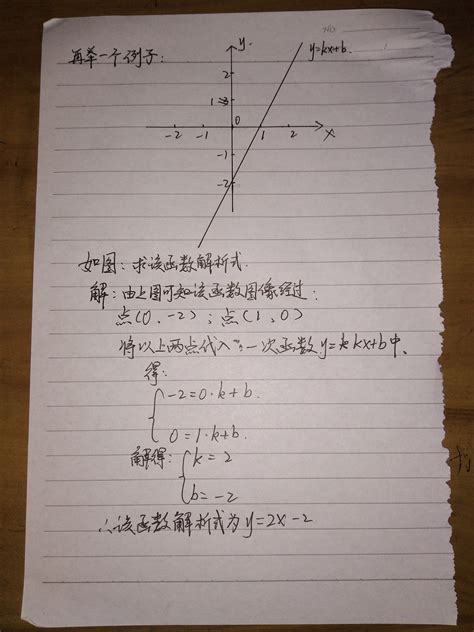 再举一个例子：
y
y=kx+b.
2
1
0
-2 -1 1 2 x
-1
-2
如图：求该函数解析式.
解：由上图可知该函数图像经过：
点(0，-2)；点(1，0)
将以上两点代入一次函数y=kx+b中、
得：
-2=0·k+b.
0=1·k+b.
解得：k=2
b=-2
∴该函数解析式为y=2x-2